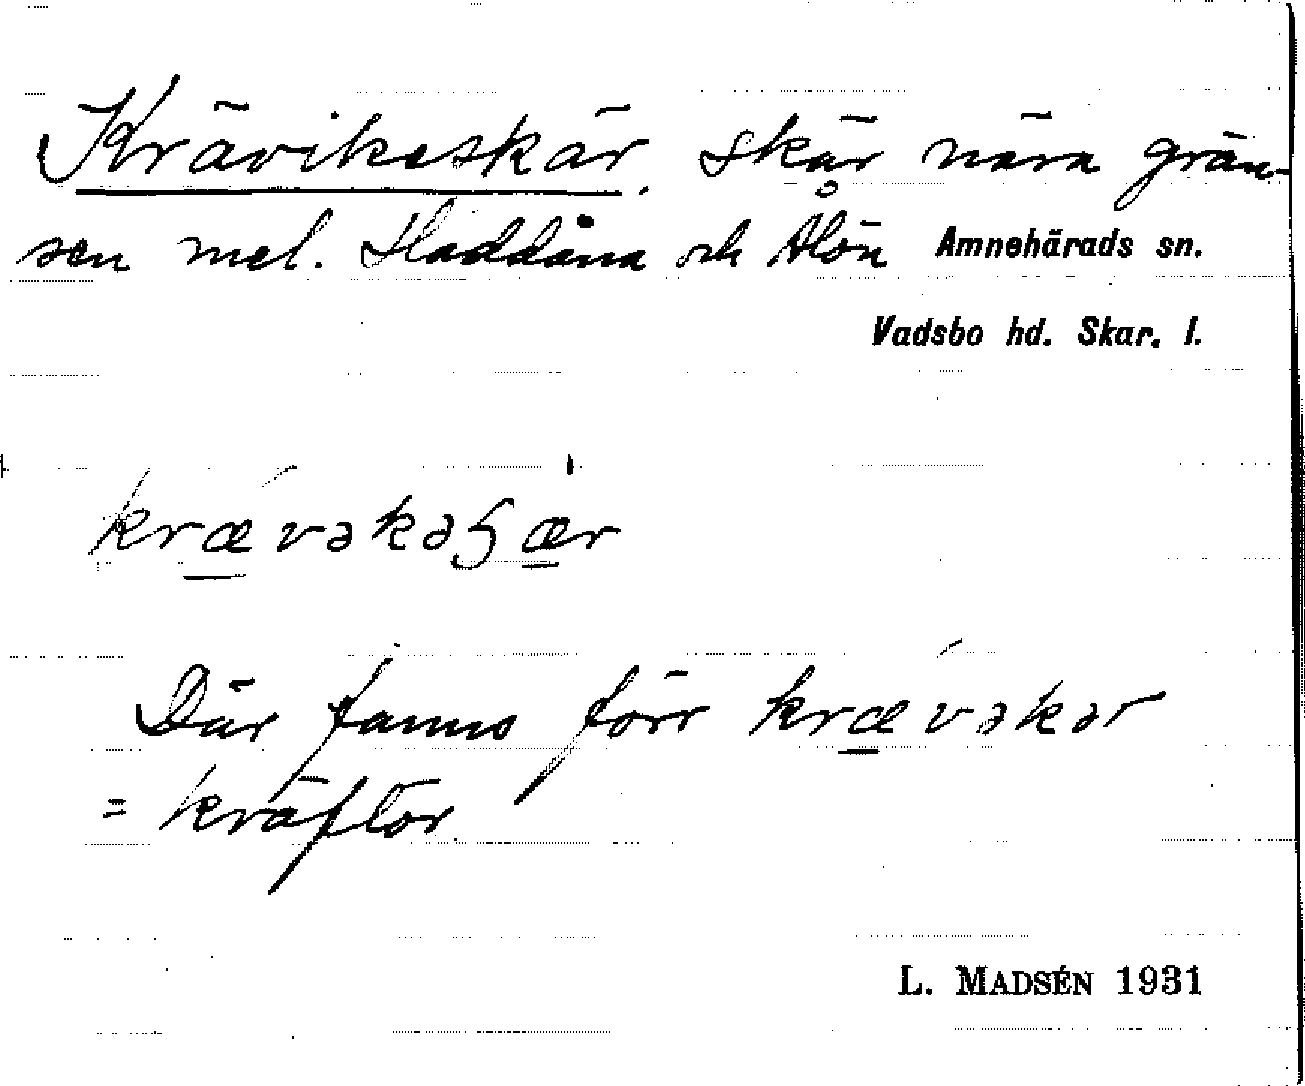 Krävikeskär. Skär nära grän-
sen mel. och Amnehärads sn.
Vadsbo hd. Skar. l.
krævəkəʂær
Där fanns förr krævəkər
= kräftor
L. MADSÉN 1931